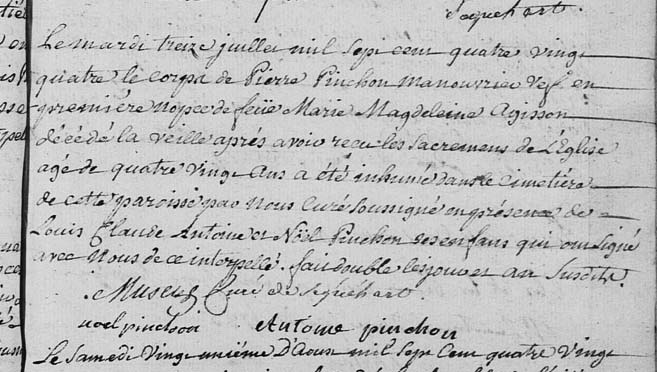 Sequehart.
Le mardi treize juillet mil sept cent quatre vingt
quatre le corps de Pierre Pinchon manouvrier Veuf en
première nopce de feüe Marie Magdeleine Agisson
décédé la veille après avoir recu les Sacremens de L'Eglise
agé de quatre vingt Ans a été inhumé dans le Cimetière
de cette paroisse par Nous Curé Soussigné en présence de
Louis Claude Antoine et Nöel Pinchon ses enfans qui ont Signé
avec Nous de ce interpellé. fait double les jour et an Susdits.
Curé de Sequehart.
noel pinchon Antoine pinchon
Le Samedi Vingt unième D'Aoust mil Sept Cent quatre Vingt